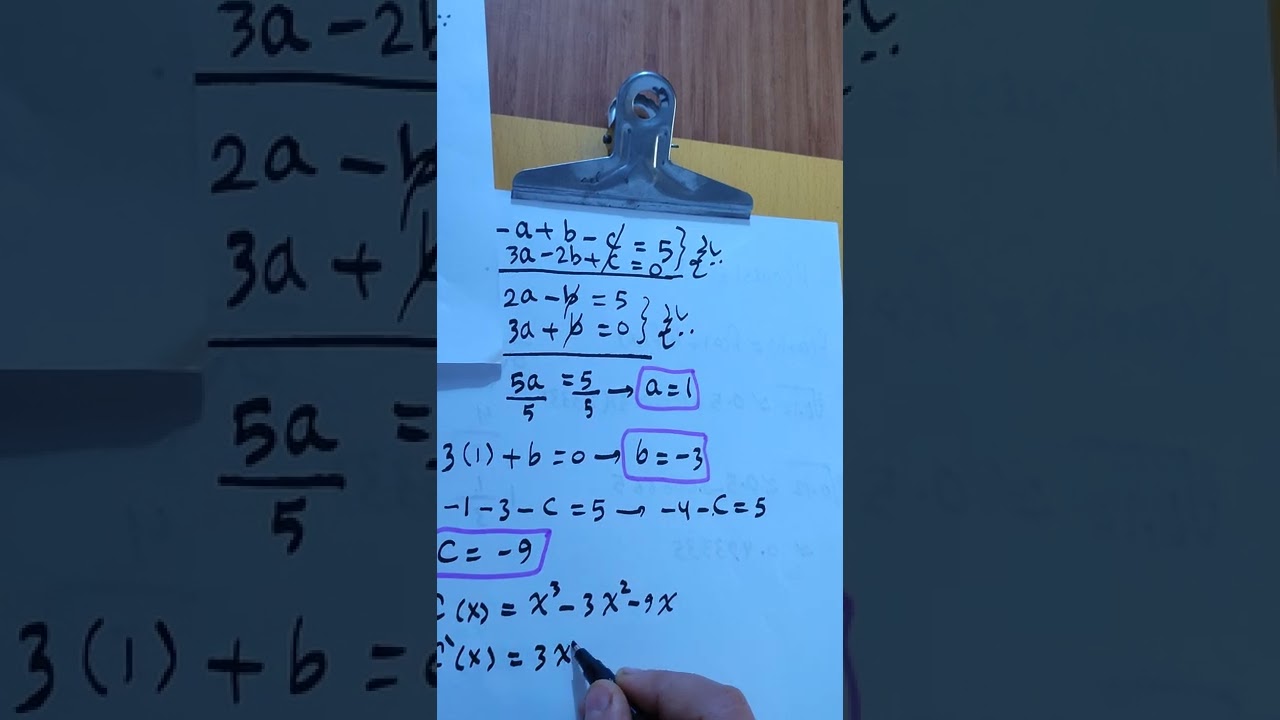 -a + b - c = 5
3a - 2b + c = 0
2a - b = 5
3a + b = 0
5a/5 = 5/5 → a = 1
3(1) + b = 0 → b = -3
-1 - 3 - c = 5 → -4 - c = 5
c = -9
(x) = x³ - 3x² - 9x
(x) = 3x